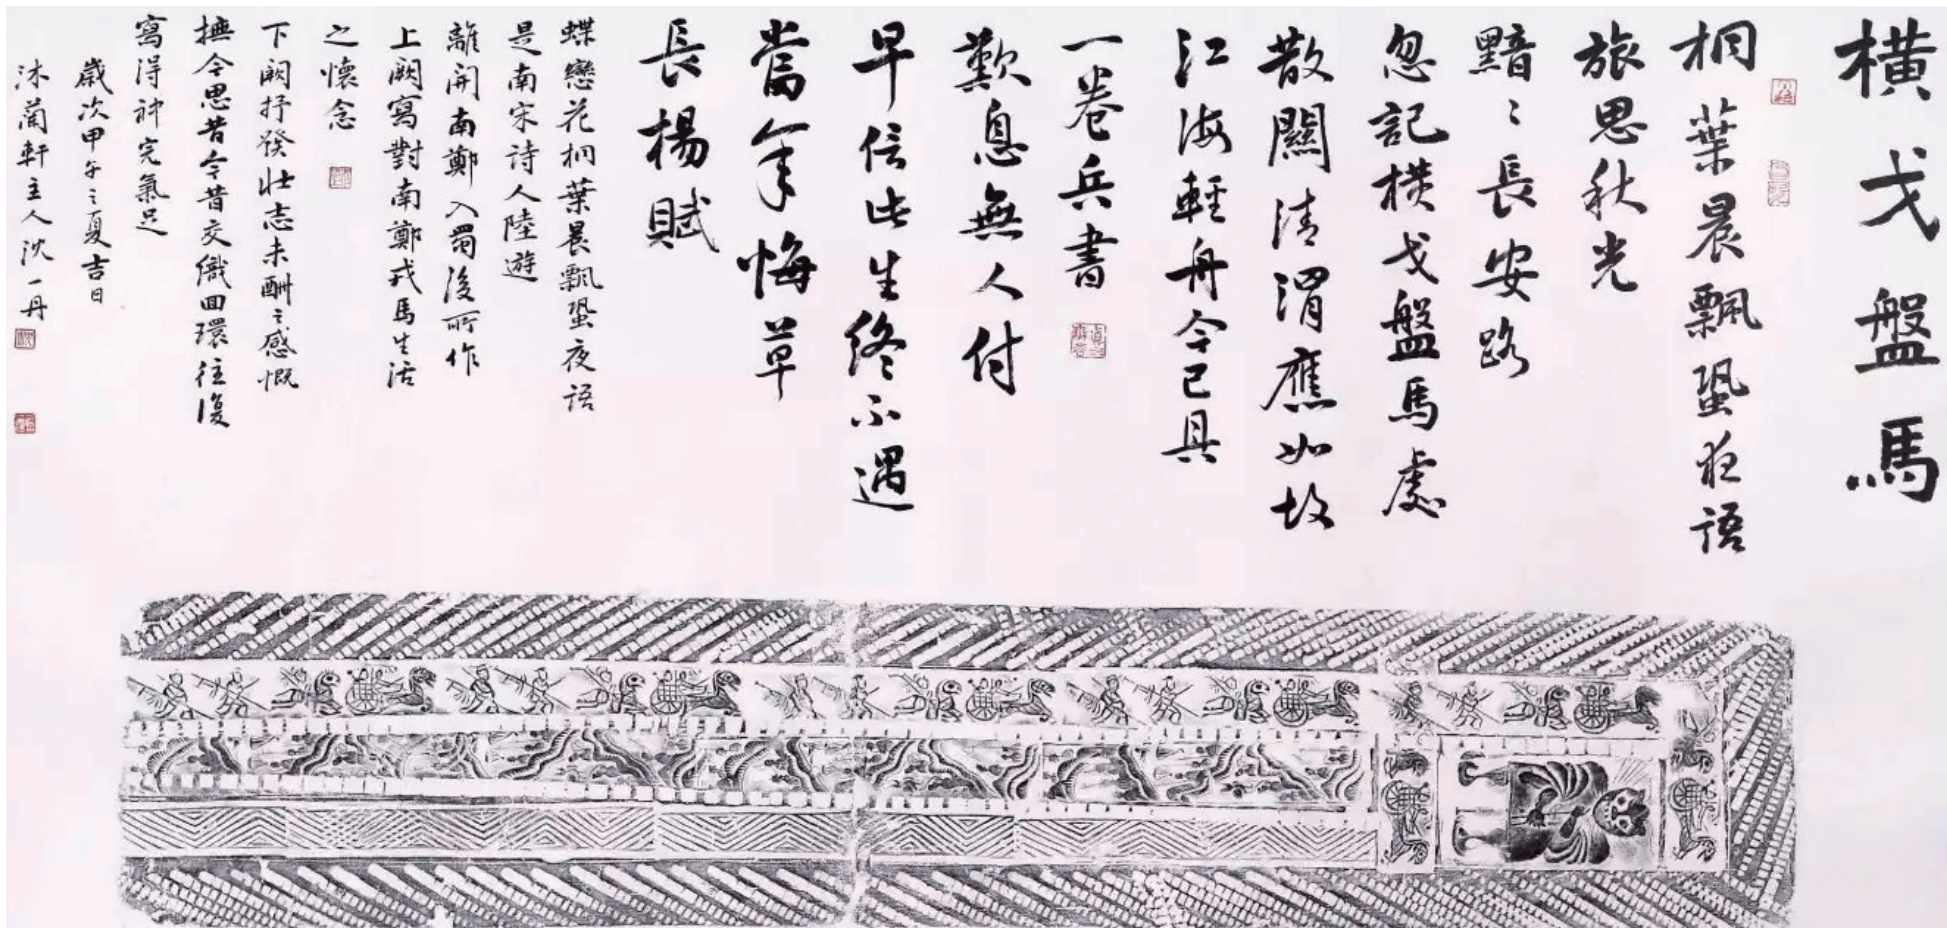 橫戈盤馬
桐葉晨飄蛩夜語
旅思秋光
黯黯長安路
忽記橫戈盤馬處
散關清渭應如故
江海輕舟今已具
一卷兵書
歎息無人付
早信此生終不遇
當年悔草
長楊賦
蝶戀花桐葉晨飄蛩夜語
是南宋詩人陸游
離開南鄭入蜀後所作
上闋寫對南鄭戎馬生活
之懷念
下闋抒發壯志未酬之感慨
撫今思昔今昔交織回環往復
寫得神完氣足
歲次甲午之夏吉日
沐蘭軒主人沈一丹